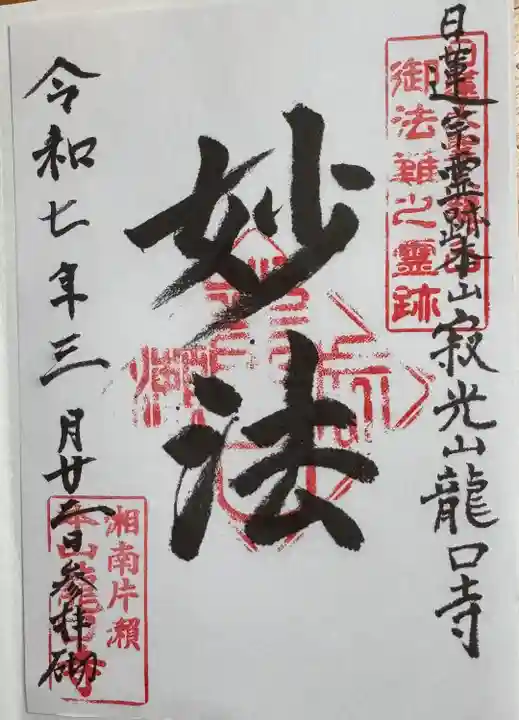 日蓮宗霊跡本山寂光山龍口寺
御法難之霊跡
妙法
令和七年三月廿二日参拝砌
湘南片瀬
本山龍口寺